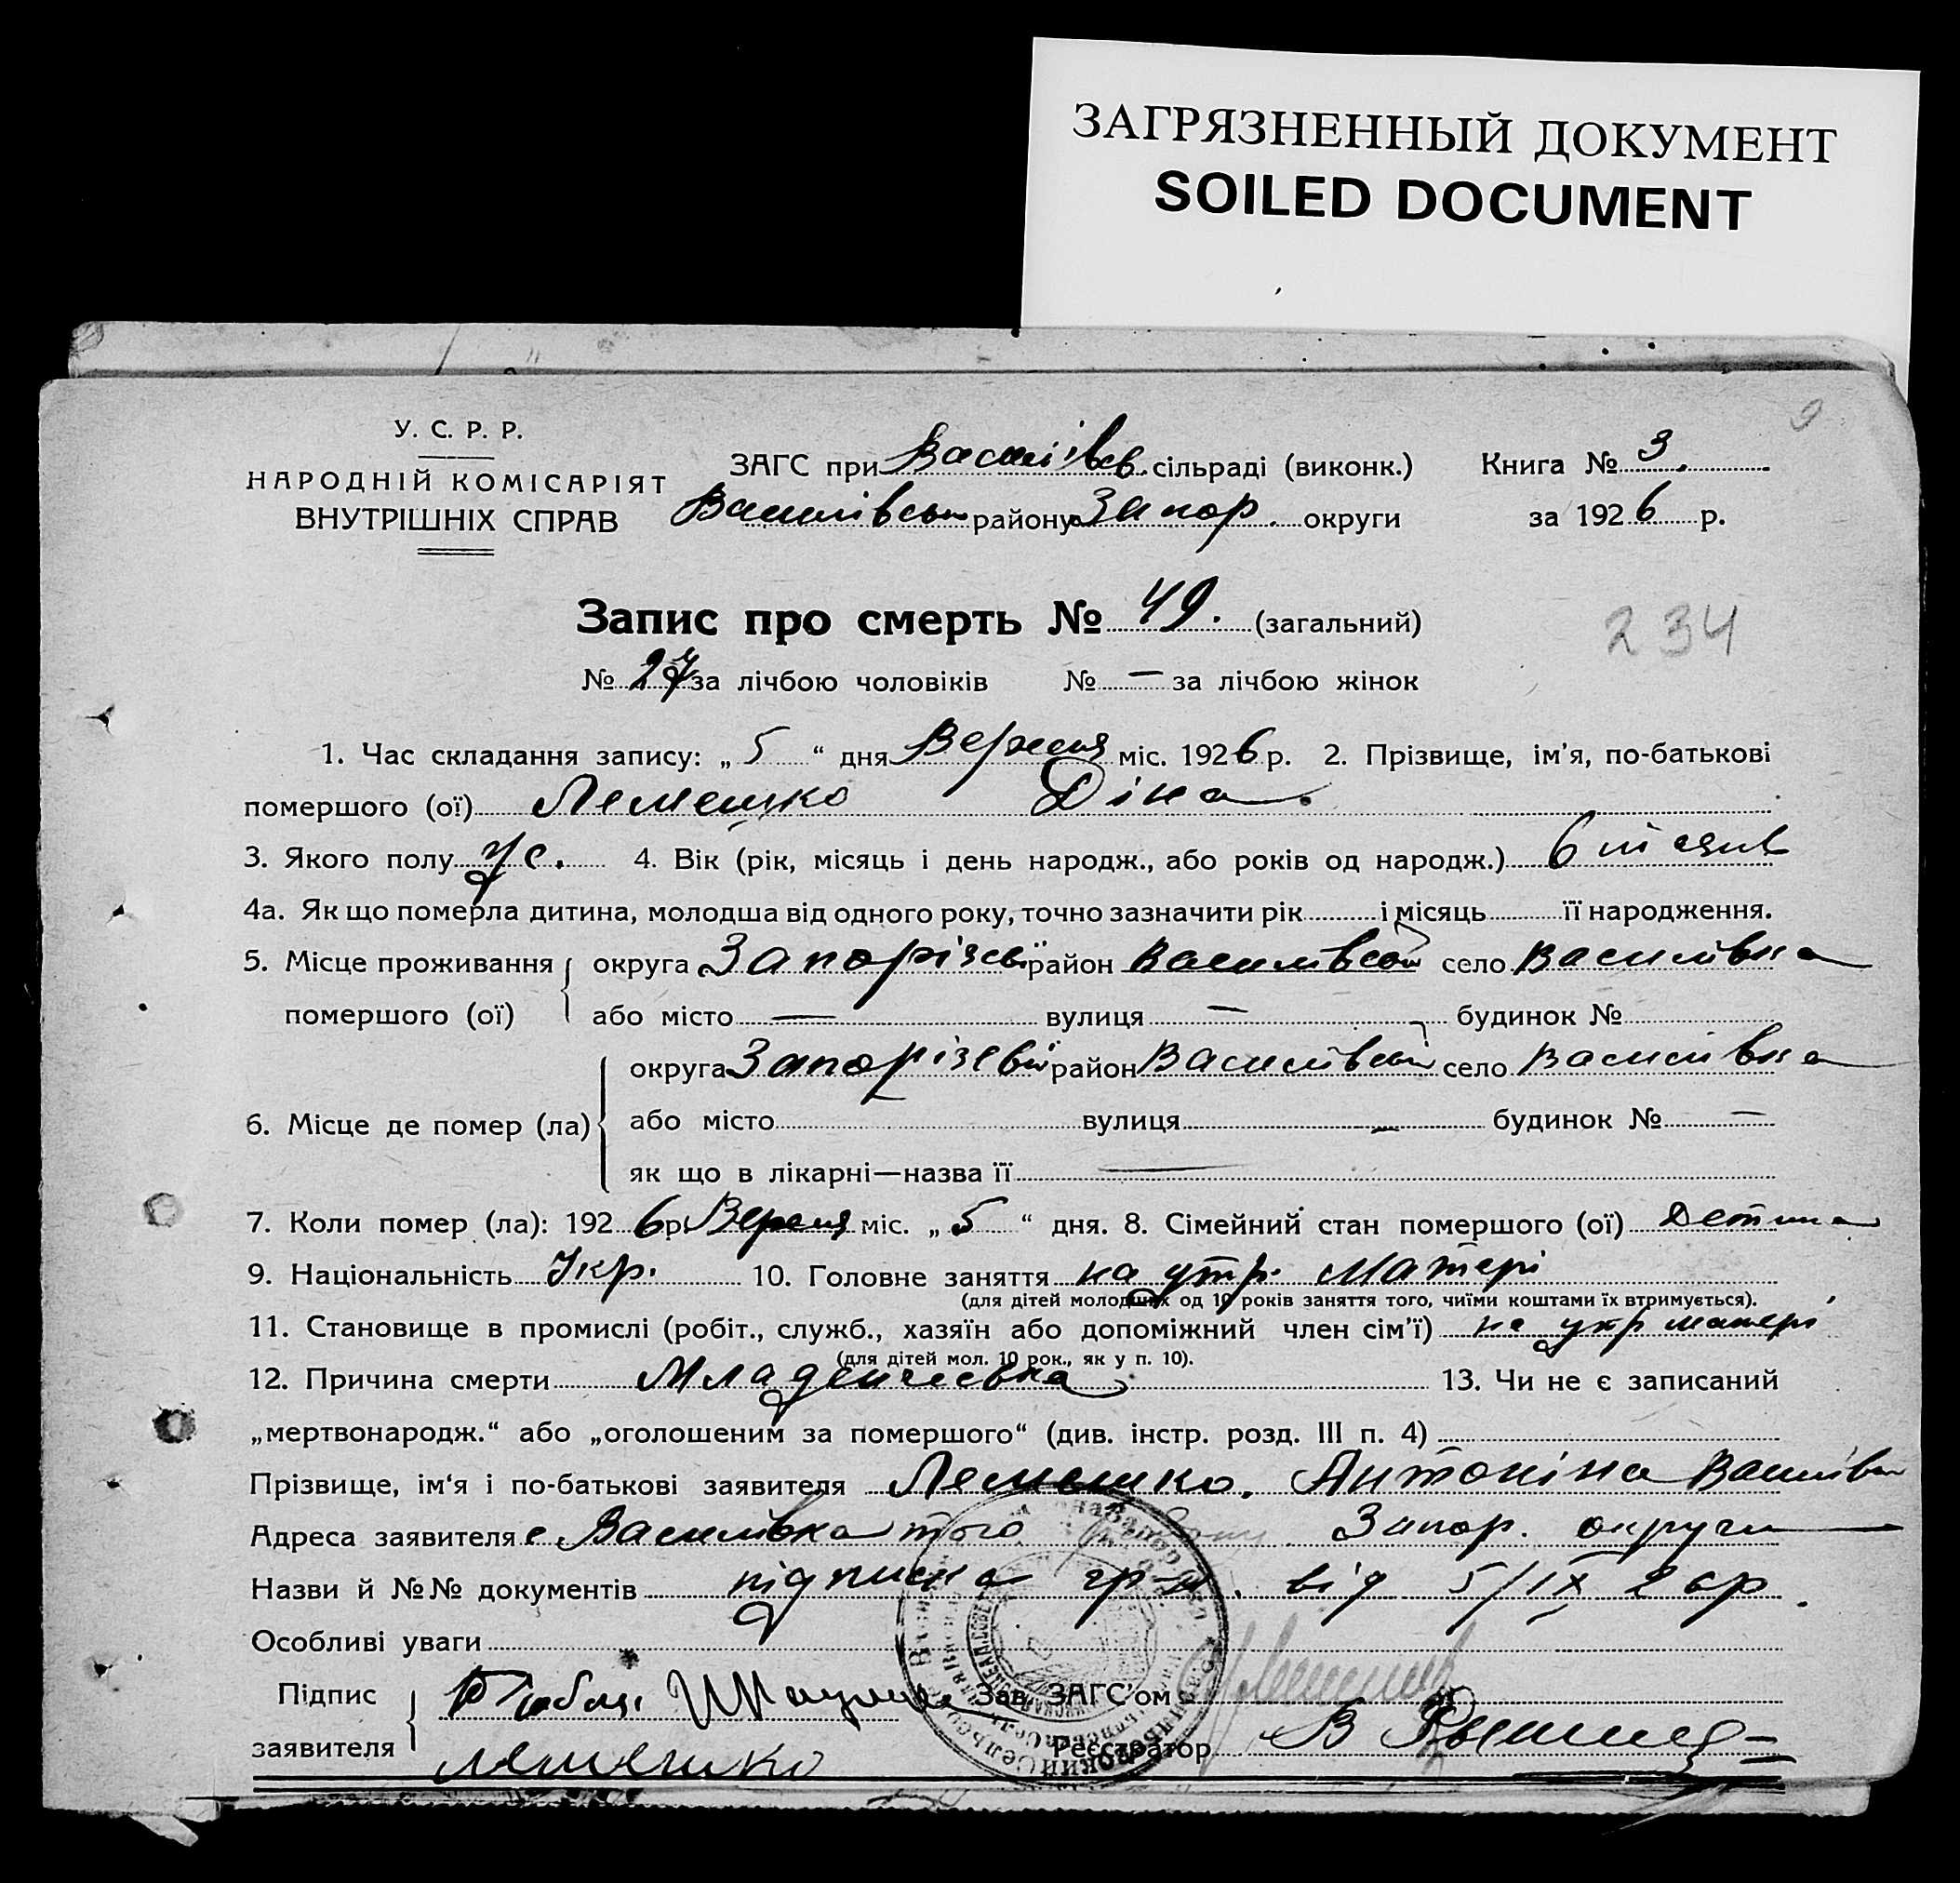 ЗАГРЯЗНЕННЫЙ ДОКУМЕНТ
SOILED DOCUMENT
9
У. С. Р. Р.
НАРОДНІЙ КОМІСАРІЯТ
ВНУТРІШНІХ СПРАВ
ЗАГС при Василівськ. сільраді (виконк.) Книга № 3.
Василівськ району Запор. округи за 1926 р.
Запис про смерть № 49. (загальний)
234
№ 27 за лічбою чоловіків № — за лічбою жінок
1. Час складання запису: „ 5 “ дня Вересня міс. 1926 р. 2. Прізвище, ім'я, по-батькові
помершого (ої) Лемешко Діна.
3. Якого полу 4. Вік (рік, місяць і день народж., або років од народж.) 6 місяців
4а. Як що померла дитина, молодша від одного року, точно зазначити рік і місяць її народження.
5. Місце проживання округа Запорізській район Василівський село Василівка
помершого (ої) або місто — вулиця — будинок №
округа Запорізській район Василівський село Василівка
6. Місце де помер (ла) або місто вулиця — будинок № —
як що в лікарні—назва її —
7. Коли помер (ла): 1926 р. Вересня міс. „ 5 “ дня. 8. Сімейний стан помершого (ої) Детина
9. Національність Укр. 10. Головне заняття на утр. матері
(для дітей молодших од 10 років заняття того, чиїми коштами їх втримується).
11. Становище в промислі (робіт., служб., хазяїн або допоміжний член сім'ї) на утр матері
(для дітей мол. 10 рок., як у п. 10).
12. Причина смерти Младенчієвка 13. Чи не є записаний
„мертвонародж.“ або „оголошеним за помершого“ (див. інстр. розд. III п. 4)
Прізвище, ім'я і по-батькові заявителя Лемешко. Антоніна Василівн
Адреса заявителя с. Василівка того Запор. округи
Назви й №№ документів підписка гр-н. від 5/IX 26р.
Особливі уваги
Підпис Зав. ЗАГС'ом
заявителя Лемешко Реєстратор В